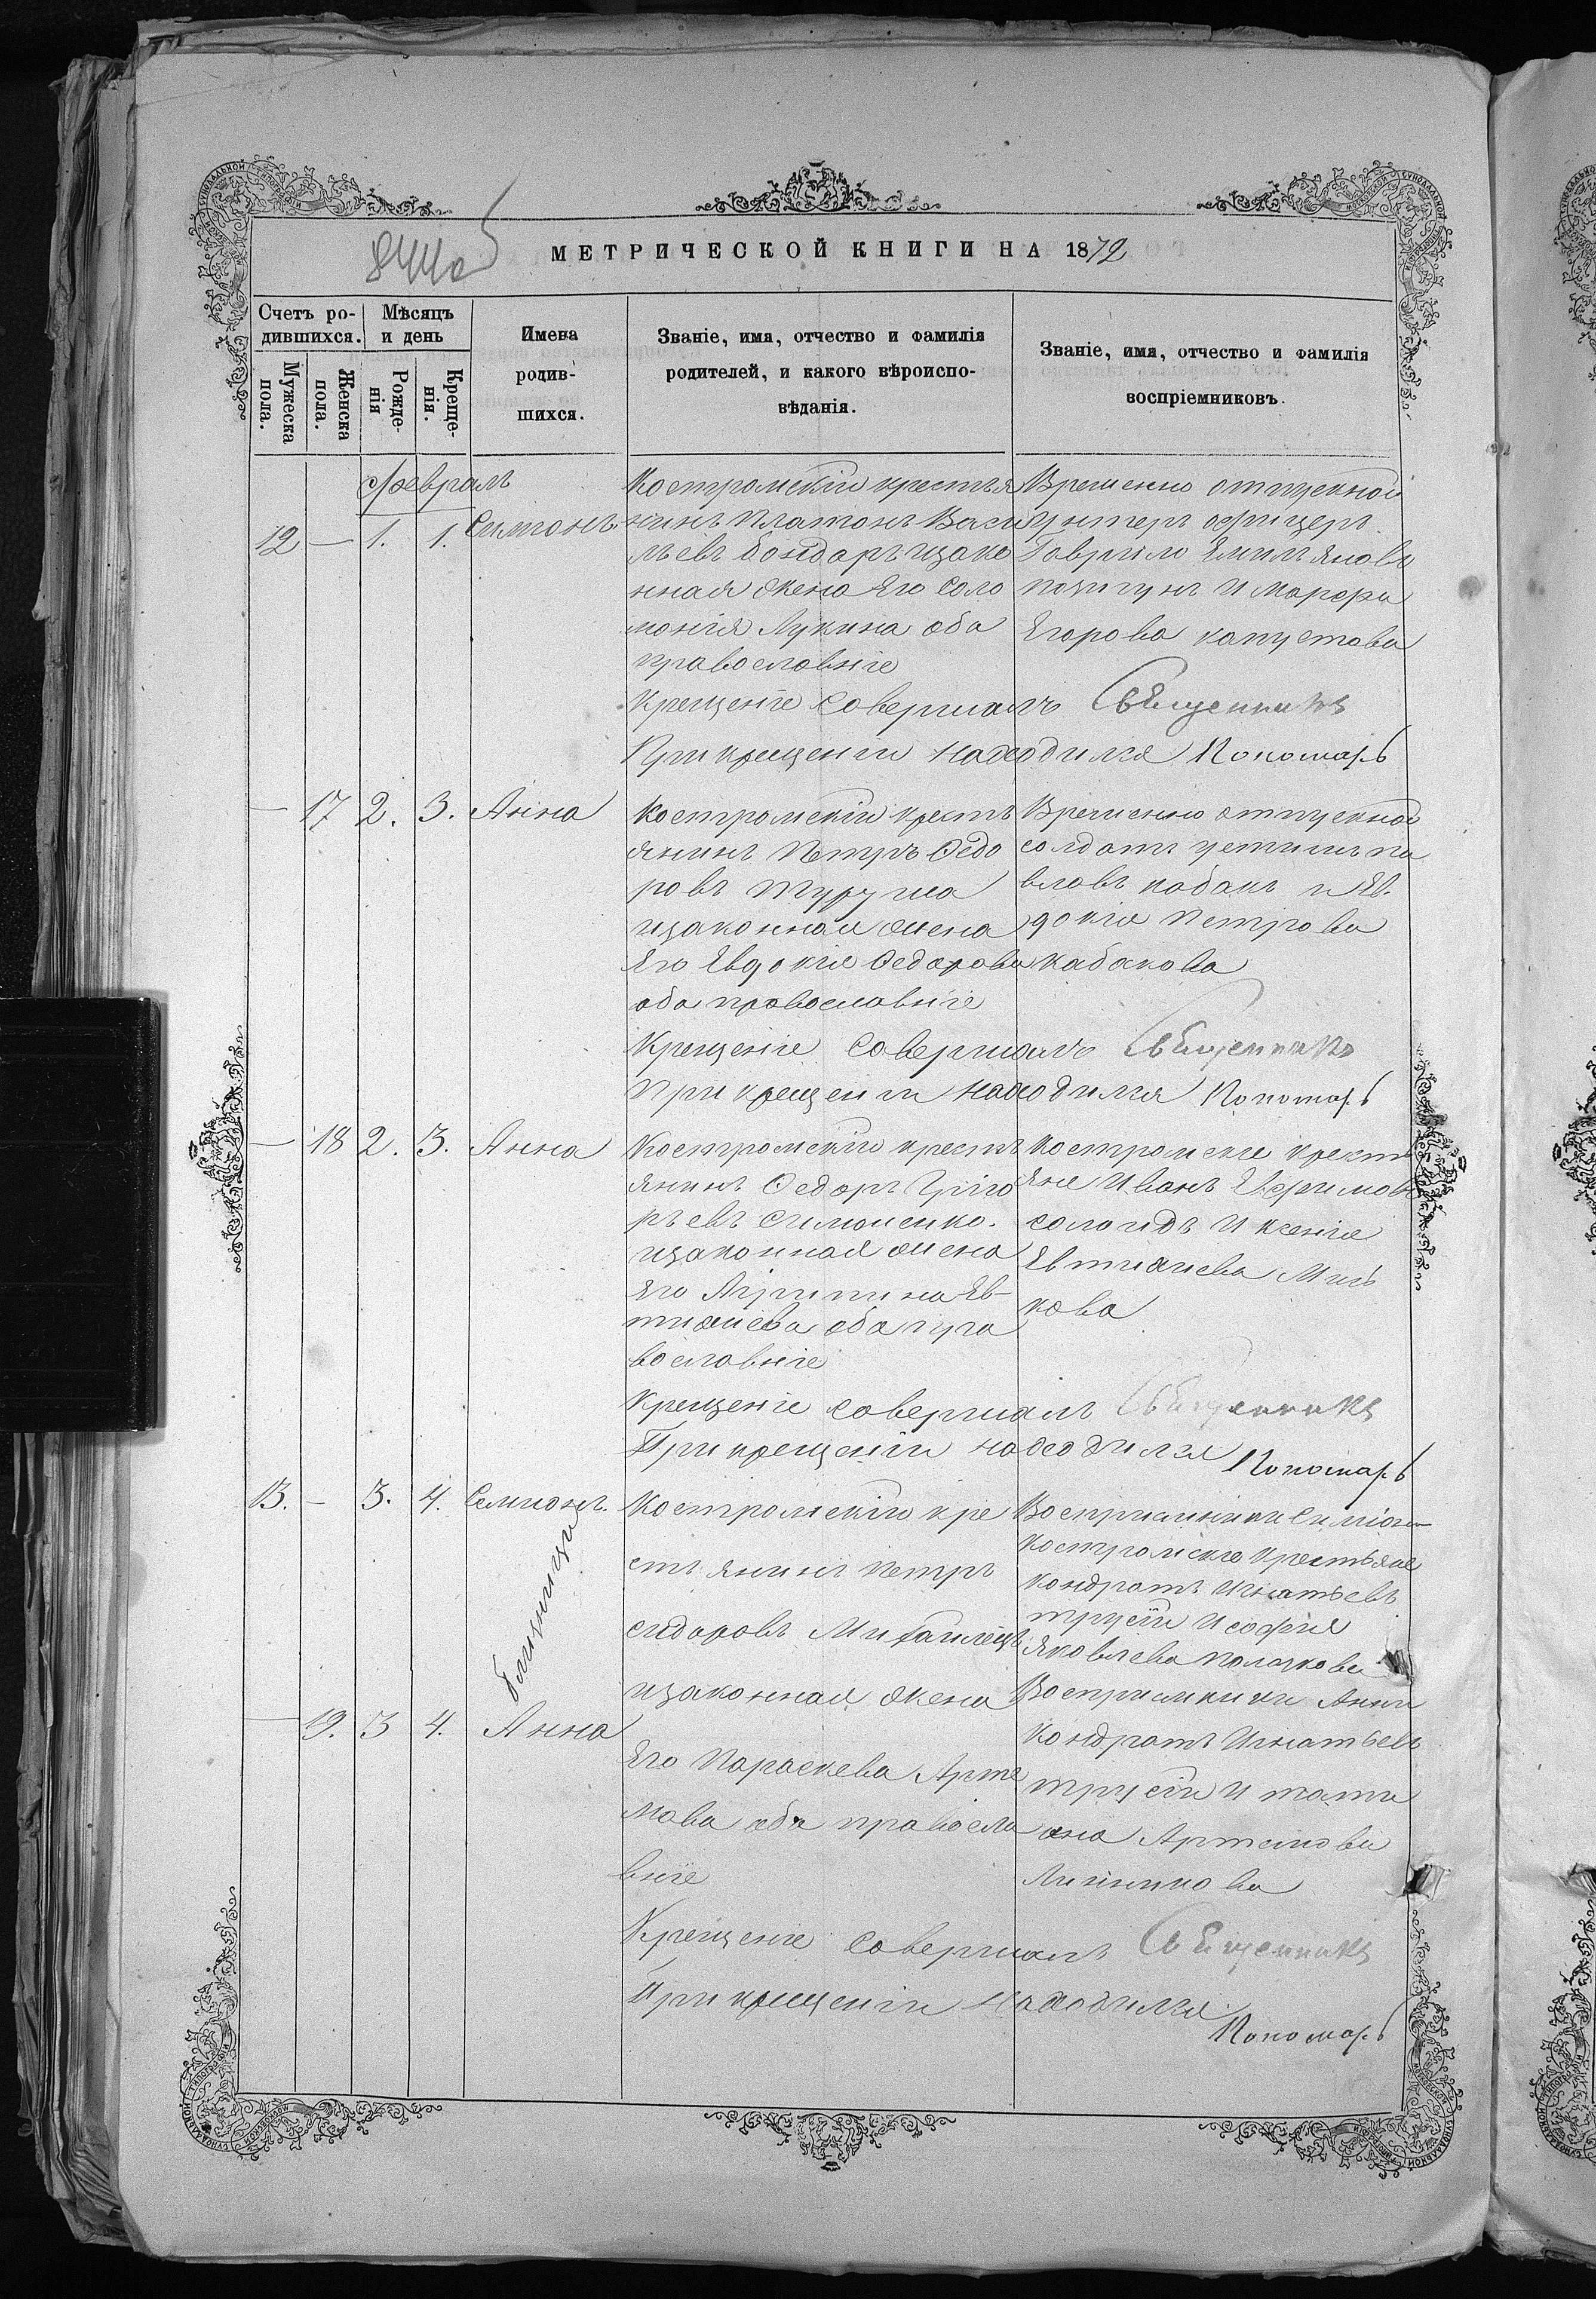 МЕТРИЧЕСКОЙ КНИГИ НА 1872
Счетъ ро-
дившихся.
Мужеска
пола.
Женска
пола.
Мѣсяцъ
и день
Рожде-
нія
Креще-
нія.
Имена
родив-
шихся.
Званіе, имя, отчество и фамилія
родителей, и какого вѣроиспо-
вѣданія.
Званіе, имя, отчество и фамилія
воспріемниковъ.
Февраль
12 — 1. 1. Симионъ
Костромскій крестья
нинъ Платонъ Васи
льевъ Бондарь изако
нная жена Его Соло
монія Лукина оба
православніе
Временно отпускной
унтеръ офицеръ
Гаврило Емильяновъ
и Марфа
Егорова капустова
Крещеніе Совершалъ Священникъ
При крещеніи находился Пономарь
— 17 2. 3. Анна
Костромскій кресть
янинъ Петръ Федо
ровъ Туруша
изаконная жена
Его Евдокія Федорова
оба православніе
Временно отпускной
солдатъ устинъ па
вловъ кабакъ и Ев-
докія Петрова
кабакова
Крещеніе Совершалъ Священникъ
При крещеніи находился Пономарь
— 18 2. 3. Анна
Костромскій кресть
янинъ Федоръ Григо
рьевъ Симоненко.
изаконная жена
Его Агрипина Ев-
тихиева оба пра
вославніе
Костромскіе кресть
яне Иванъ Ефимовъ
солоидъ и ксенія
Евтихиева Мишь
кова
Крещеніе совершалъ Священникъ
При крещеніи находился Пономарь
13. — 3. 4. Семионъ.
близници
— 19. 3 4. Анна
Костромскій кре
стьянинъ Петръ
сидоровъ Михайлецъ
изаконная жена
Его Параскева Арте
мова оба правосла
вніе
Восприемники Симіона
Костромскіе Крестьяне
кондратъ Игнатьевъ
трусій и софія
Яковлева
Восприемники Анни
Кондратъ Игнатьевъ
трусій и тати
яна Артемова
Крещеніе Совершалъ Священникъ
При крещеніи находился
Пономарь